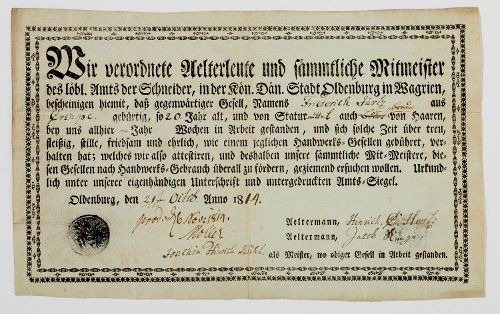 Wir verordnete Aelterleute und sämmtliche Mitmeister
des löbl. Amts der Schneider, in der Kön. Dän. Stadt Oldenburg in Wagrien,
bescheinigen hiemit, daß gegenwärtiger Gesell, Namens Friederich aus
gebürtig, so 20 Jahr alt, und von Statur auch braun von Haaren,
bey uns allhier Jahr Wochen in Arbeit gestanden, und sich solche Zeit über treu,
fleißig, stille, friedsam und ehrlich, wie einem jeglichen Handwerks-Gesellen gebühret, ver-
halten hat; welches wir also attestiren, und deshalben unsere sämmtliche Mit-Meistere, die-
sen Gesellen nach Handwerks-Gebrauch überall zu fördern, geziemend ersuchen wollen. Urkund-
lich unter unserer eigenhändigen Unterschrift und untergedruckten Amts-Siegel.
Oldenburg, den Octbr Anno 1814.
1814.
Aeltermann, Hinrich
Möller
Aeltermann, Jacob
Joachim Hinrich als Meister, wo obiger Gesell in Arbeit gestanden.